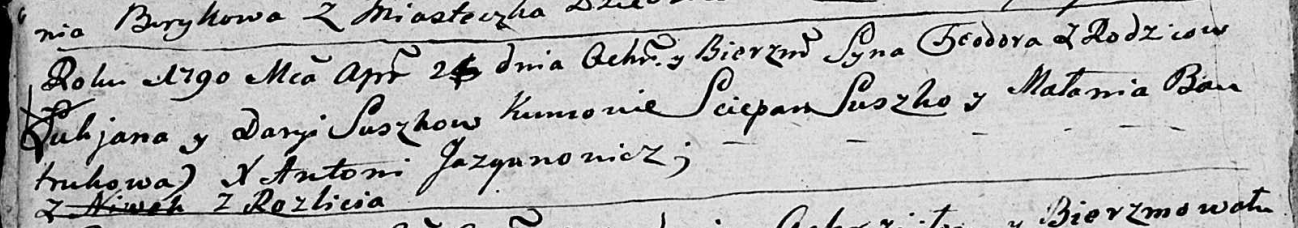 nia Burykowa Z Miasteczka
Roku 1790 Mca Apr 25 dnia Ochr. y Bierzm Syna Teodora Z Rodzicow
Lukjana y Daryi Suszkow Kumowie Sciepan Suszko y Małania Bau
trukowa) X Antoni Jazgunowicz;
Z Niwek Z Rozlicia
y Bierzmowału